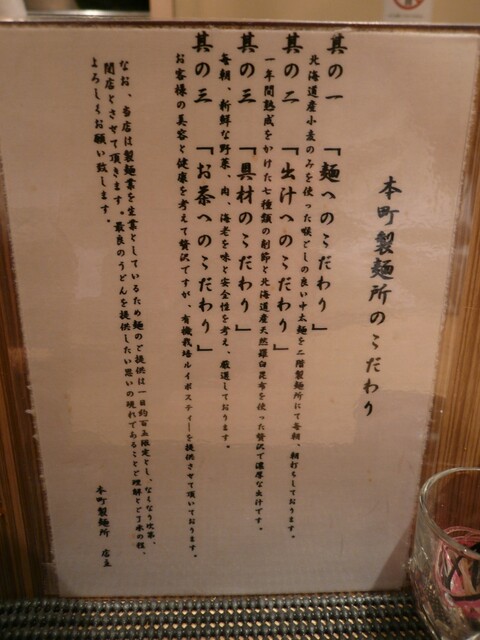 本町製麺所のこだわり
其の一 「麺へのこだわり」
北海道産小麦のみを使った喉ごしの良い中太麺を二階製麺所にて毎朝、朝打ちしております。
其の二 「出汁へのこだわり」
一年間熟成をかけた七種類の削節と北海道産天然羅臼昆布を使った贅沢で濃厚な出汁です。
其の三 「具材のこだわり」
毎朝、新鮮な野菜、肉、海老を味と安全性を考え、厳選しております。
其の三 「お茶へのこだわり」
お客様の美容と健康を考えて贅沢ですが、有機栽培ルイボスティーを提供させて頂いております。
なお、当店は製麺業を生業としているため麺のご提供は一日約百五限定とし、なくなり次第、
閉店とさせて頂きます。最良のうどんを提供したい思いの現れであることご理解とご了承の程、
よろしくお願い致します。
本町製麺所 店主